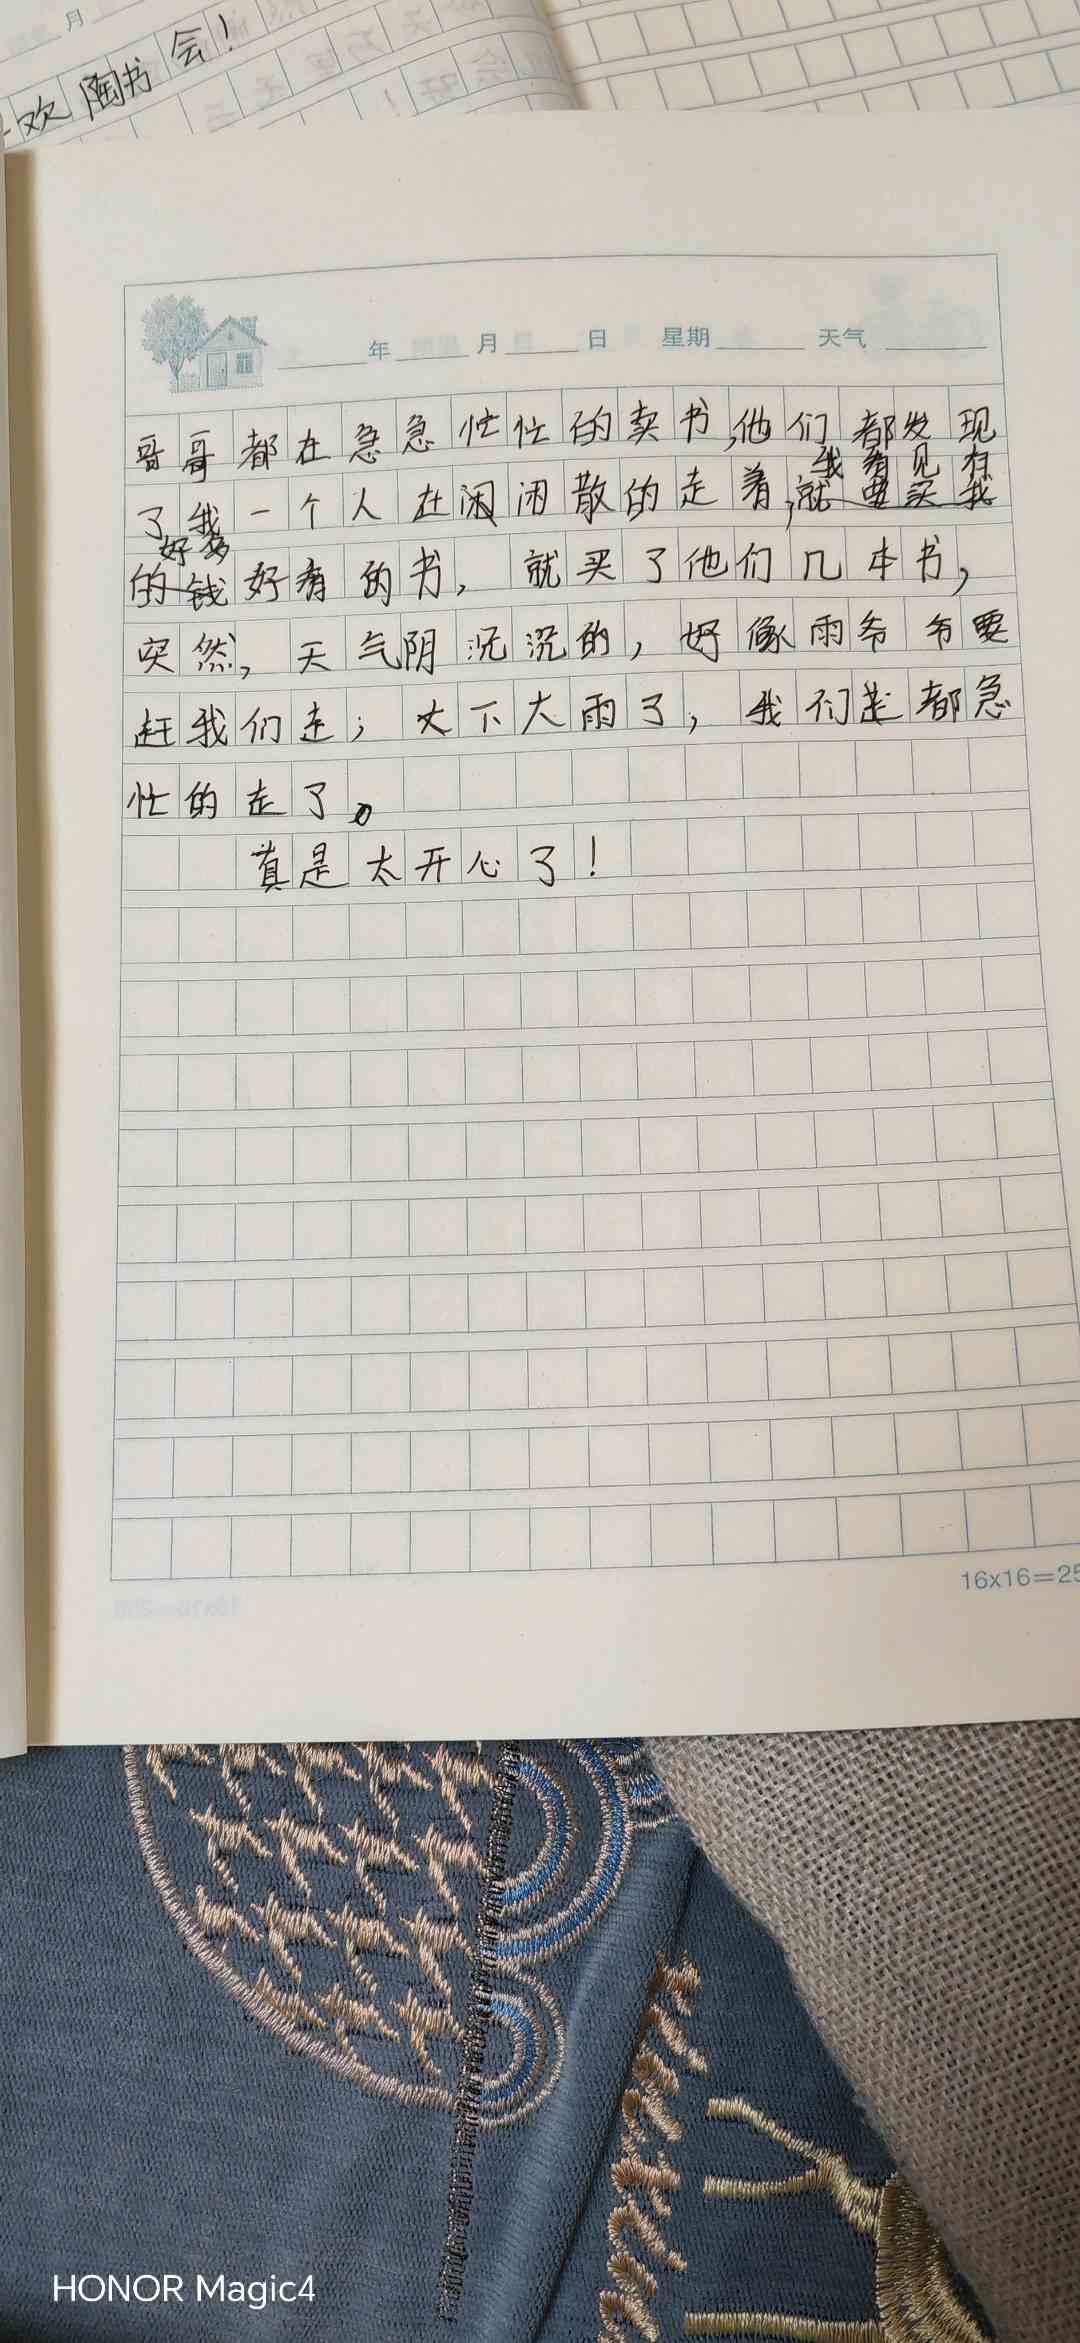 月
欢陶书会！
年 月 日 星期 天气
哥哥都在急急忙忙的卖书,他们都发现
我看见有
了我一个人在闲闲散的走着,就要买我
好多
的钱好看的书，就买了他们几本书，
突然，天气阴沉沉的，好像雨爷爷要
赶我们走；大下大雨了，我们是都急
忙的走了。
真是太开心了！
16x16=25
HONOR Magic4